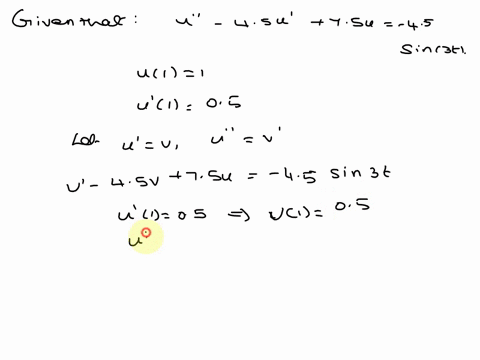 Given that : u'' - 4.5u' + 7.5u = -4.5
sin(3t).
u(1) = 1
u'(1) = 0.5
Let u' = v, u'' = v'
v' - 4.5v + 7.5u = -4.5 sin 3t
u'(1) = 0.5 ⇒ v(1) = 0.5
u